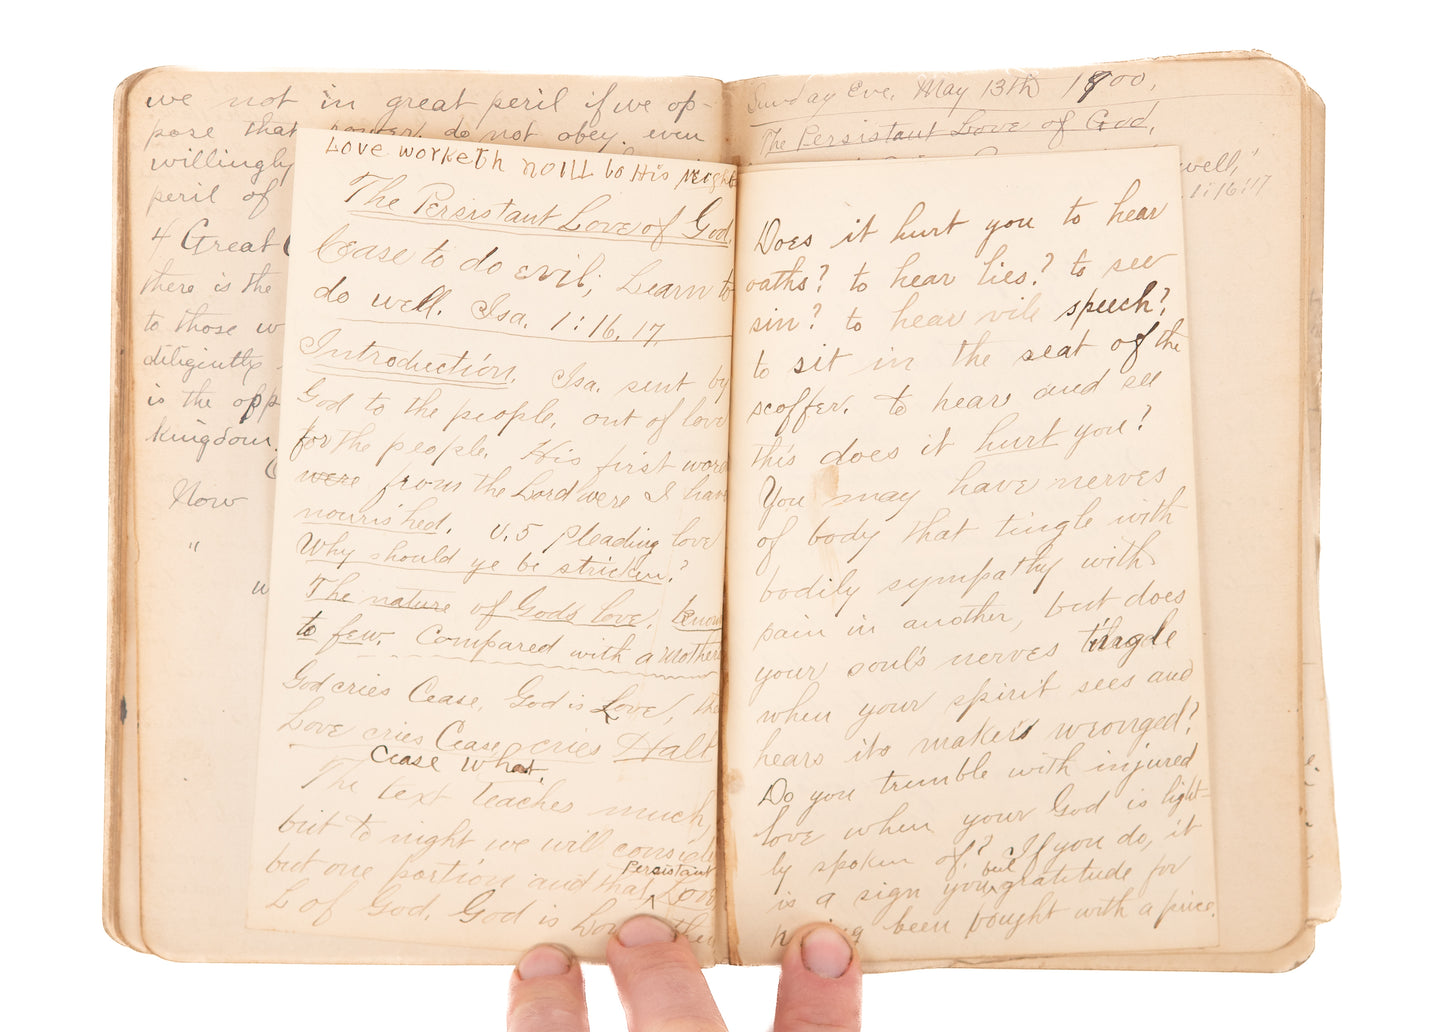 we not in great peril if we op-
pose that power, do not obey. even
willingly
peril of
4 Great
there is the
to those w
diligently
is the opp
kingdom.
Now
"
w
Love worketh no Ill to His neigh
The Persistant Love of God.
Cease to do evil; Learn to
do well. Isa. 1:16,17,
Introduction. Isa. sent by
God to the people, out of love
for the people. His first word
were from the Lord were I have
nourished. v.5 pleading love
Why should ye be stricken?
The nature of Gods love. known
to few. Compared with a mothers
God cries Cease, God is Love, the
Love cries Cease, cries Halt
Cease What.
The text teaches much,
but to night we will conside
but one portion and that Persistant Love
L of God. God is Lov then
Sunday Eve. May 13th 1900,
The Persistant Love of God,
well,"
1:16:17
Does it hurt you to hear
oaths? to hear lies? to see
sin? to hear vile speech?
to sit in the seat of the
scoffer. to hear and see
this does it hurt you?
You may have nerves
of body that tingle with
bodily sympathy with
pain in another, but does
your soul's nerves tingle
when your spirit sees and
hears its maker's wronged?
Do you tremble with injured
love when your God is light-
ly spoken of? If you do, it
is a sign you, but gratitude for
been bought with a price.